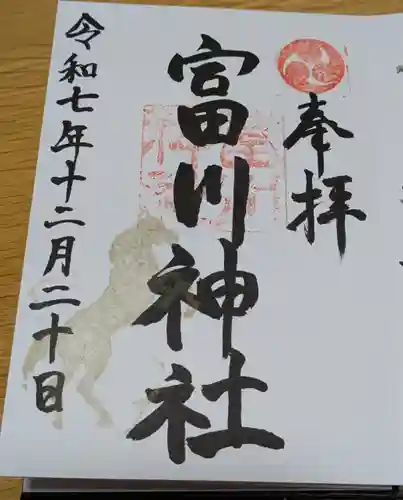 奉拝
富川神社
令和七年十二月二十日